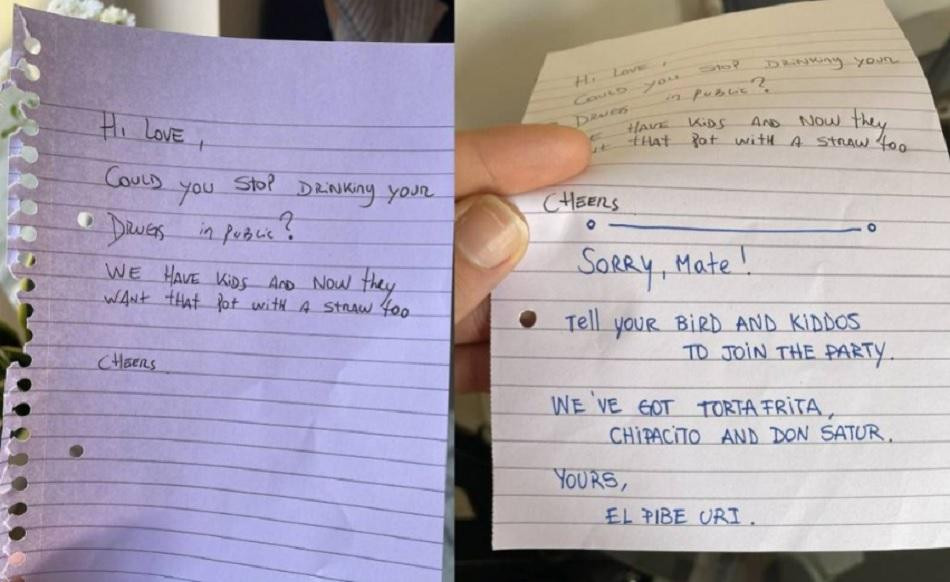 Hi LOVE,
COULD you STOP DRINKING YOUR
DRUGS in public?
WE HAVE KIDS AND NOW they
WANT tHAT Pot with A STRAW too
CHEERS
Hi LOVE,
COULD you STOP DRINKING YOUR
DRUGS in public?
HAVE KIDS AND NOW they
tHAT Pot with A STRAW too
CHEERS
SORRY, MATE!
Tell YOUR BIRD AND KIDDOS
TO JOIN THE PARTY.
WE'VE GOT TORTA FRITA,
CHIPACITO AND DON SATUR.
YOURS,
EL PIBE URI.